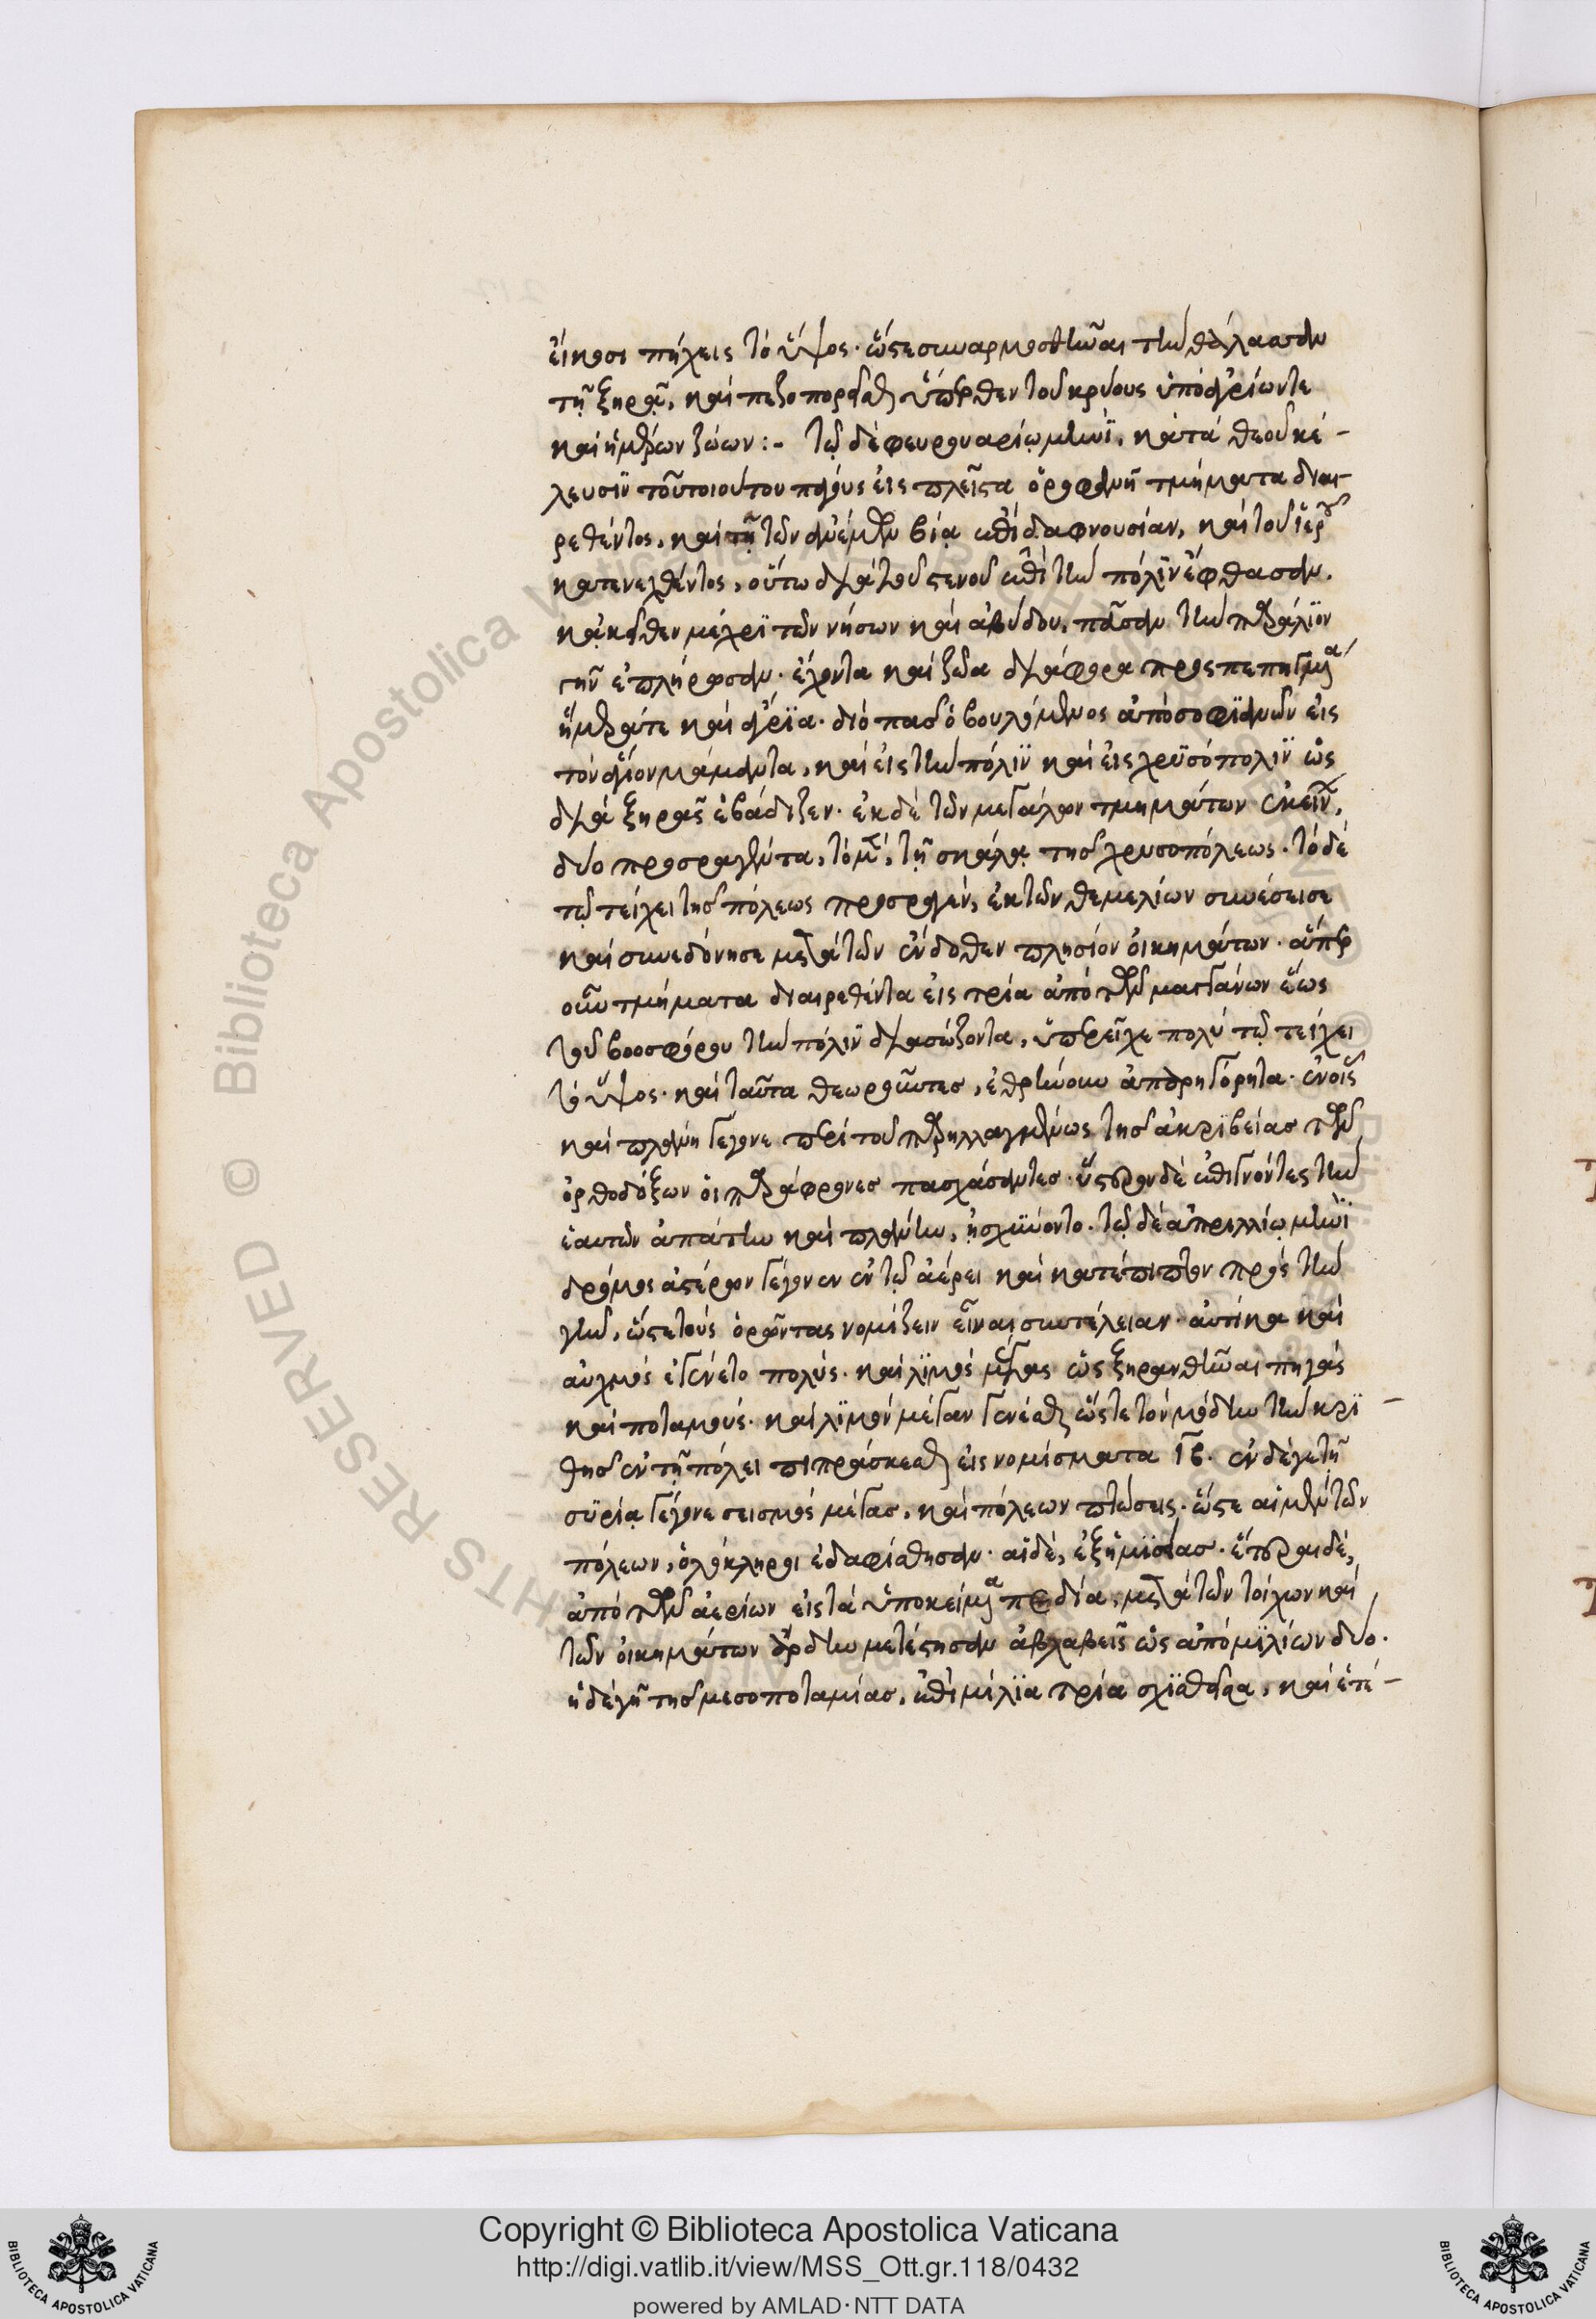 εἴκοσι πήχεις τὸ ὕψος· ὥστε συναρμοσθῆναι τὴν θάλασσαν
τῇ ξηρᾷ, καὶ πεζοπορεῖσθαι ὕπερθεν τοῦ κρύους ὑπὸ ἀγρίων τε
καὶ ἡμέρων ζώων :- τῷ δὲ φευρουαρίῳ μηνῒ, κατὰ θεοῦ κέ-
λευσϊν τοῦ τοιούτου πάγους εἰς πλεῖστα ὀροφανῆ τμήματα διαι
ρεθέντος, καὶ τῇ τῶν ἀνέμων βίᾳ ἐπὶ δαφνουσίαν, καὶ τοῦ ἱεροῦ
κατενεχθέντος, οὕτω διὰ τοῦ στενοῦ ἐπὶ τὴν πόλϊν ἔφθασαν.
κἀκεῖθεν μέχρϊ τῶν νήσων καὶ ἀβύδου, πᾶσαν τὴν παράλϊον
γῆν ἐπλήρωσαν· ἔχοντα καὶ ζῶα διάφορα προσπεπηγμένα
ἥμερά τε καὶ ἄγρϊα· διὸ πᾶς ὁ βουλόμενος ἀπὸ σοφϊανῶν εἰς
τὸν ἅγιον μάμαντα, καὶ εἰς τὴν πόλϊν καὶ εἰς χρϋσόπολϊν ὡς
διὰ ξηρᾶς ἐβάδιζεν· ἐκ δὲ τῶν μεγάλων τμημάτων ἐκείνων,
δύο προσραγέντα, τὸ μὲν, τῇ σκάλᾳ τῆς χρυσοπόλεως· τὸ δὲ
τῷ τείχει τῆς πόλεως προσραγὲν, ἐκ τῶν θεμελίων συνέσεισε
καὶ συνεδόνησε μετὰ τῶν ἔνδοθεν πλησίον οἰκημάτων· ἅπερ
οὖν τμήματα διαιρεθέντα εἰς τρία ἀπὸ τῶν μαγγάνων ἕως
τοῦ βοοσφόρου τὴν πόλϊν διασώζοντα, ὑπερεῖχε πολὺ τῷ τείχει
τὸ ὕψος· καὶ ταῦτα θεωροῦντες, ἐθρήνουν ἀπαρηγόρητα· ἐν οἷς
καὶ πλάνη γέγονε περὶ τοῦ παρηλλαγμένως τῆς ἀκρϊβείας τῶν
ὀρθοδόξων οἱ παράφρονες πασχάσαντες· ὕστερον δὲ ἐπιγνόντες τὴν
ἑαυτῶν ἀπάτην καὶ πλάνην, ᾐσχϋνοντο. τῷ δὲ ἀπριλλίῳ μηνῒ
δρόμος ἀστέρων γέγονεν ἐν τῷ ἀέρει καὶ κατέπιπτον πρὸς τὴν
γῆν, ὥστε τοὺς ὁρῶντας νομίζειν εἶναι συντέλειαν· αὐτίκα καὶ
αὐχμὸς ἐγένετο πολύς. καὶ λϊμὸς μέγας ὡς ξηρανθῆναι πηγὰς
καὶ ποταμούς· καὶ λϊμὸν μέγαν γενέσθαι ὥστε τὸν μόδιν τὴν κρϊ-
θῆς ἐν τῇ πόλει πιπράσκεσθαι εἰς νομίσματα ιβ. ἐν δέ γε τῇ
σϋρίᾳ γέγονε σεισμὸς μέγας, καὶ πόλεων πτώσεις· ὥστε αἱ μὲν τῶν
πόλεων, ὁλόκληροι ἐδαφίσθησαν· αἱ δὲ, ἐξ ἡμϊσίας· ἕτεραι δὲ,
ἀπὸ τῶν ἀερίων εἰς τὰ ὑποκείμενα πεδία, μετὰ τῶν τοίχων καὶ
τῶν οἰκημάτων ἄρδην μετέστησαν ἀβλαβεῖς ὡς ἀπὸ μϊλίων δύο.
ἡ δὲ γῆ τῆς μεσοποταμίας, ἐπὶ μίλϊα τρία σχϊσθεῖσα, καὶ ἑτέ-
Copyright © Biblioteca Apostolica Vaticana
http://digi.vatlib.it/view/MSS_Ott.gr.118/0432
powered by AMLAD·NTT DATA